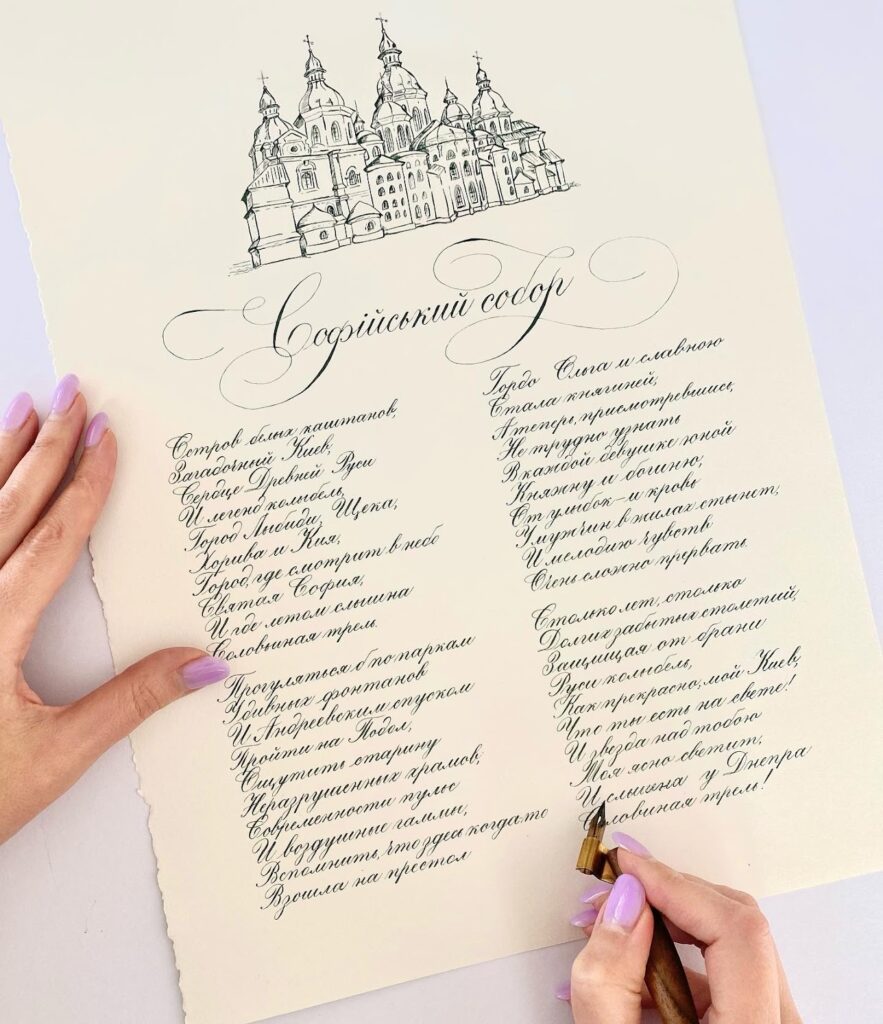 Софійський собор
Остров белых каштанов,
Загадочный Киев,
Сердце Древней Руси
И легенд колыбель,
Город Лыбиди, Щека,
Хорива и Кия,
Город, где смотрит в небо
Святая София,
И где летом слышна
Соловьиная трель.
Прогуляться б по паркам
У дивных фонтанов
И Андреевским спуском
Пройти на Подол,
Ощутить старину
Неразрушенных храмов,
Современности пульс
И воздушные гаммы,
Вспомнить, что здесь когда то
Взошла на престол
Гордо Ольга и славною
Стала княгиней,
А теперь, присмотревшись,
Не трудно узнать
В каждой девушке юной
Княжну и богиню,
От улыбок – и кровь
У мужчин в жилах стынет,
И мелодию чувств
Очень сложно прервать.
Столько лет, столько
Долгих забытых столетий,
Защищая от брани
Руси колыбель,
Как прекрасно, мой Киев,
Что ты есть на свете!
И звезда над тобою
Моя ясно светит,
И слышна у Днепра
Соловиная трель!